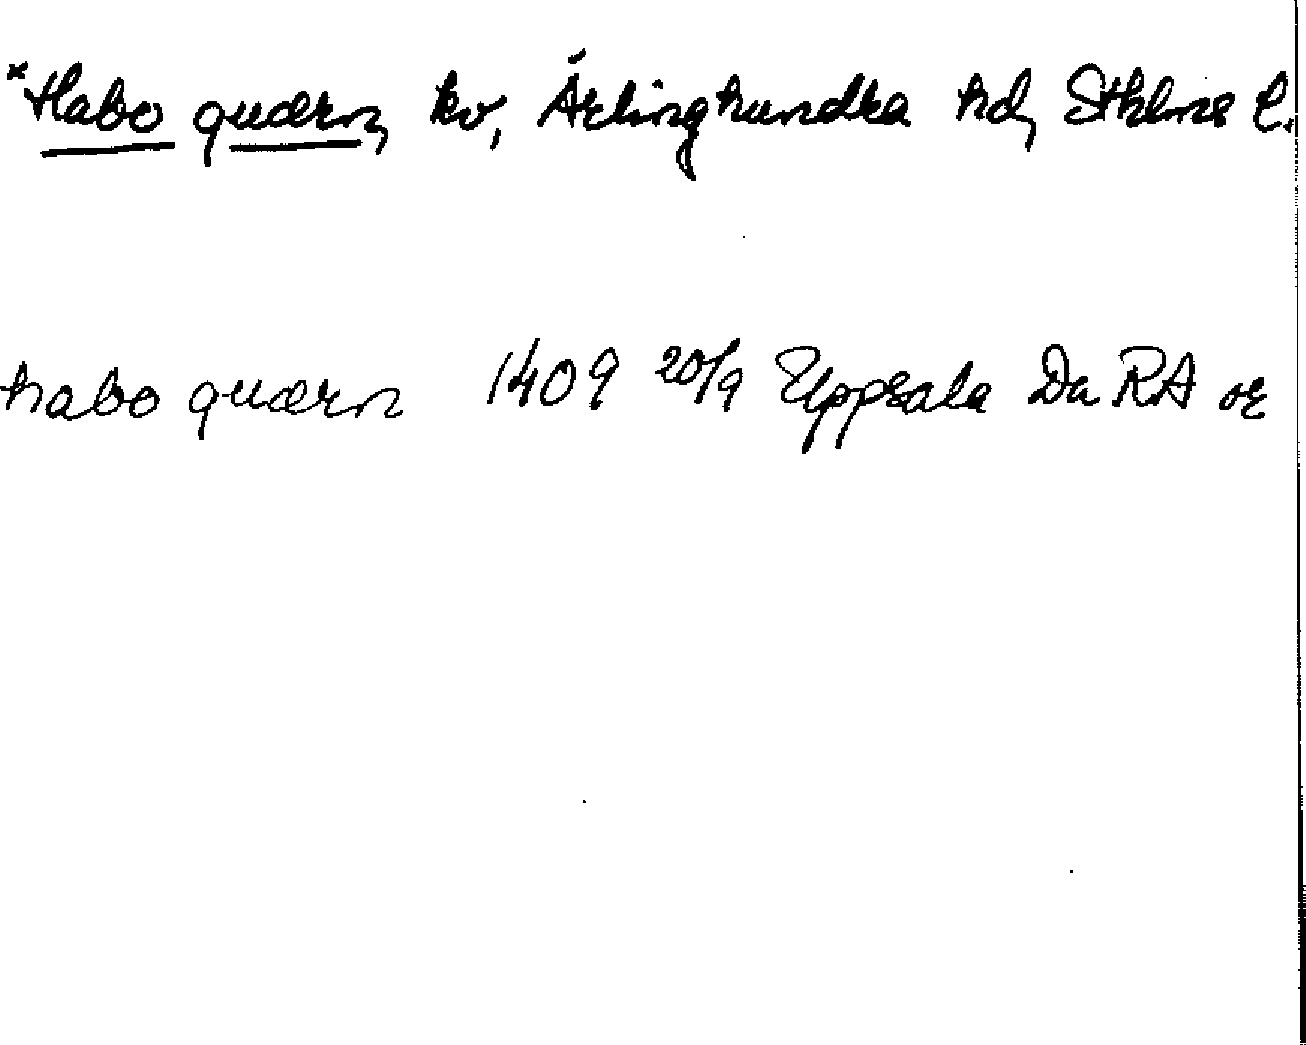 *Habo quærn, kv, Ärlinghundra hd, Sthlms l.
habo quærn 1409 20/9 Uppsala Da RA or